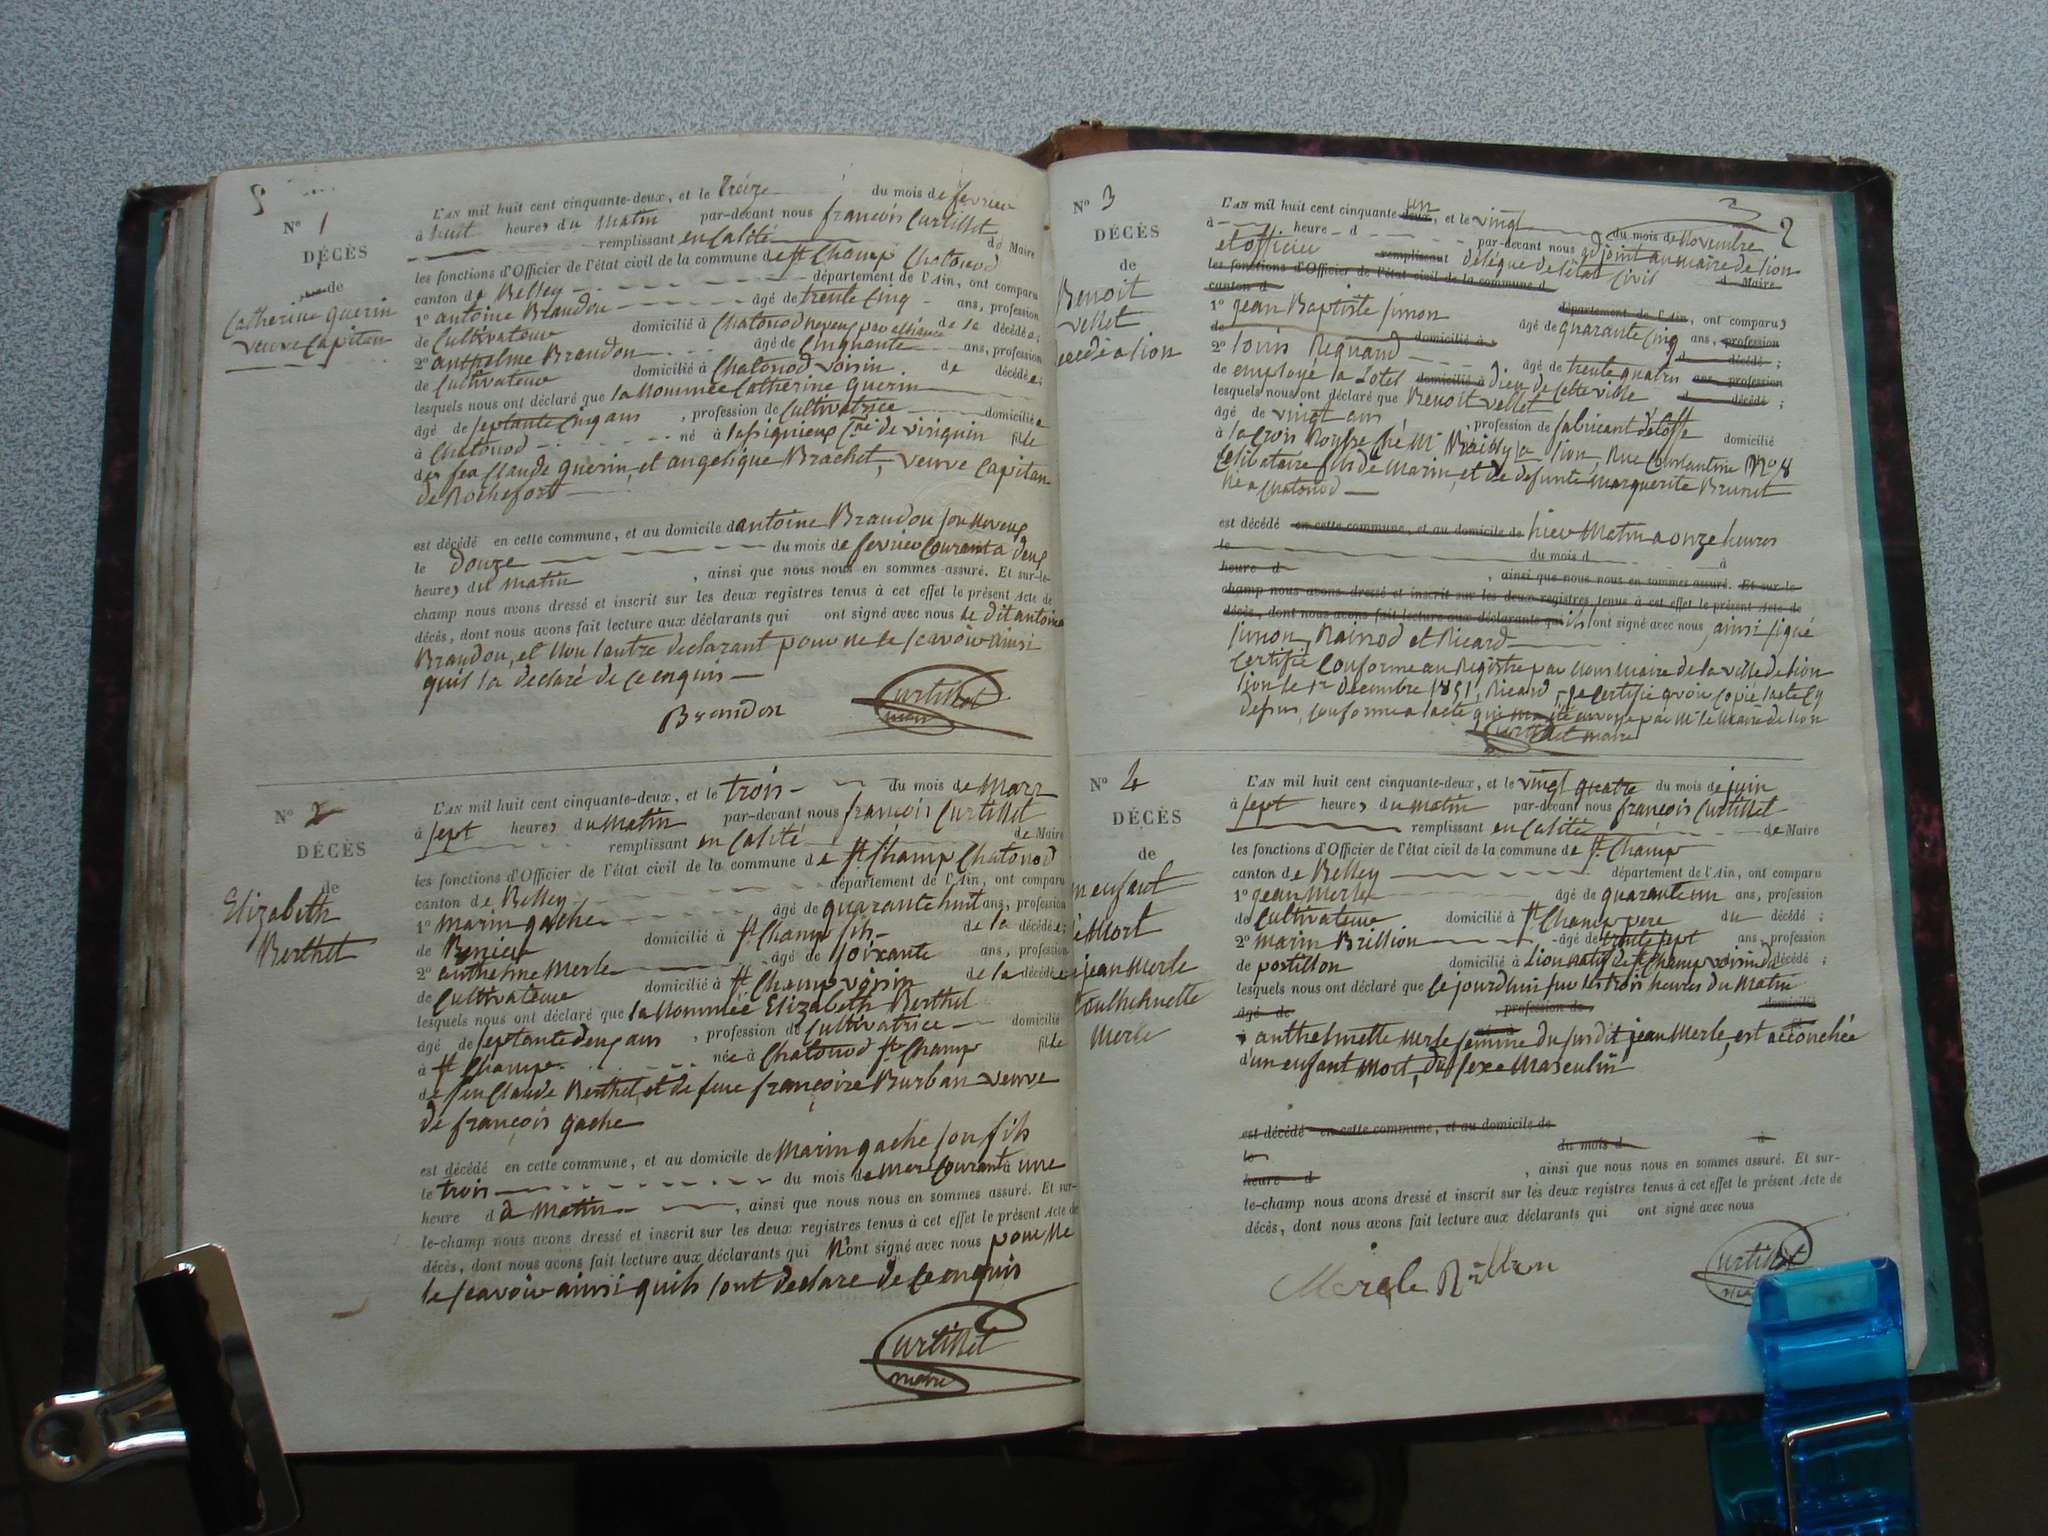 N° 1
DÉCÈS
de
Catherine Guerin
veuve Capitan
L'AN mil huit cent cinquante-deux, et le treize du mois de fevrier
à huit heures du matin par-devant nous françois Curtillet
remplissant en calité de Maire
les fonctions d'Officier de l'état civil de la commune de St Champ Chatonod
canton de Belley département de l'Ain, ont comparu
1° antoine Brandon âgé de trente cinq ans, profession
de Cultivateur domicilié à Chatonod neveux par alliance de la décédée;
2° anthelme Brandon âgé de Cinquante ans, profession
de Cultivateur domicilié à Chatonod voisin de décédée;
lesquels nous ont déclaré que la Nommée Catherine Guerin
âgé de septante cinq ans, profession de Cultivatrice domiciliée
à Chatonod né à de virignin fille
de feu Claude Guerin, et angelique Brachet, veuve Capitan
de Rochefort
est décédé en cette commune, et au domicile d antoine Brandon son Neveux
le douze du mois de fevrier Courant à deux
heures du matin, ainsi que nous nous en sommes assuré. Et sur-le-
champ nous avons dressé et inscrit sur les deux registres tenus à cet effet le présent Acte de
décès, dont nous avons fait lecture aux déclarants qui ont signé avec nous le dit antoine
Brandon, et Non l'autre declarant pour ne le scavoir ainsi
quil la declaré de ce enquis
Brandon Curtillet
maire
N° 2
DÉCÈS
de
Elizabeth
Berthet
L'AN mil huit cent cinquante-deux, et le trois du mois de Mars
à sept heures du Matin par-devant nous françois Curtillet
remplissant en Calité de Maire
les fonctions d'Officier de l'état civil de la commune de St Champ Chatonod
canton de Belley département de l'Ain, ont comparu
1° Marin gache âgé de quarante huit ans, profession
de domicilié à St Champ fils de la décédée;
2° anthelme Merle âgé de soixante ans, profession
de Cultivateur domicilié à St Champ voisin de la décédée
lesquels nous ont déclaré que la Nommée Elizabeth Berthet
âgé de septante deux ans, profession de Cultivatrice domicilié
à St Champ née à Chatonod St Champ fille
de feu Claude Berthet, et de feue françoise Burban veuve
de françois gache
est décédé en cette commune, et au domicile de Marin gache son fils
le trois du mois de Mars Courant à une
heure d du Matin, ainsi que nous nous en sommes assuré. Et sur-
le-champ nous avons dressé et inscrit sur les deux registres tenus à cet effet le présent Acte de
décès, dont nous avons fait lecture aux déclarants qui N'ont signé avec nous pour Ne
le scavoir ainsi quils sont declare de ce enquis
Curtillet
maire
N° 3
2
DÉCÈS
de
Benoit
vellet
decedé a lion
L'AN mil huit cent cinquante deux un, et le vingt du mois de Novembre
à heure d par-devant nous adjoint au maire de lion
et officier remplissant délégué de l'état civil d Maire
les fonctions d'Officier de l'état civil de la commune d
canton d département de l'Ain, ont comparu,
1° jean Baptiste Simon âgé de quarante cinq ans, profession
de domicilié à d décédé;
2° louis Regnard âgé de trente quatre ans, profession
de employé la hotel domicilié à dieu de cette ville d décédé;
lesquels nous ont déclaré que Benoit vellet
âgé de vingt ans, profession de fabricant detoffe domicilié
à la Croix Rousse ché Mr a lion, Rue Constantine No 8
Celibataire fils de Marin, et de defunte Marguerite Brunet
Né a Chatonod
est décédé en cette commune, et au domicile de hier Matin a onze heures
le du mois d à
heure d, ainsi que nous nous en sommes assuré. Et sur-le-
champ nous avons dressé et inscrit sur les deux registres tenus à cet effet le présent Acte de
décès, dont nous avons fait lecture aux déclarants qui ils ont signé avec nous, ainsi signé
Simon, Rainod et Ricard
Certifié Conforme au Registre par Nous Maire de la ville de lion
lion le 1er decembre 1851, Ricard, je certifie avoir copié l'acte cy
dessus, conforme a l'acte qui ma été envoyé par Mr le Maire de lion
Curtillet maire
N° 4
DÉCÈS
de
un enfant
né Mort
de jean Merle
et anthelmette
Merle
L'AN mil huit cent cinquante-deux, et le vingt quatre du mois de juin
à sept heures du Matin par-devant nous françois Curtillet
remplissant en Calité de Maire
les fonctions d'Officier de l'état civil de la commune de St Champ
canton de Belley département de l'Ain, ont comparu
1° jean Merle âgé de quarante un ans, profession
de Cultivateur domicilié à St Champ pere du décédé;
2° Marin Brillion âgé de trente sept ans, profession
de postillon domicilié à Lion natif de St Champ voisin du décédé;
lesquels nous ont déclaré que cejourdhui sur les trois heures du Matin
âgé de profession de domicilié
à anthelmette Merle femme du susdit jean Merle, est accouchée
d'un enfant Mort, du sexe Masculin
est décédé en cette commune, et au domicile de
le du mois d à
heure d, ainsi que nous nous en sommes assuré. Et sur-
le-champ nous avons dressé et inscrit sur les deux registres tenus à cet effet le présent Acte de
décès, dont nous avons fait lecture aux déclarants qui ont signé avec nous
Merle Brillion Curtillet